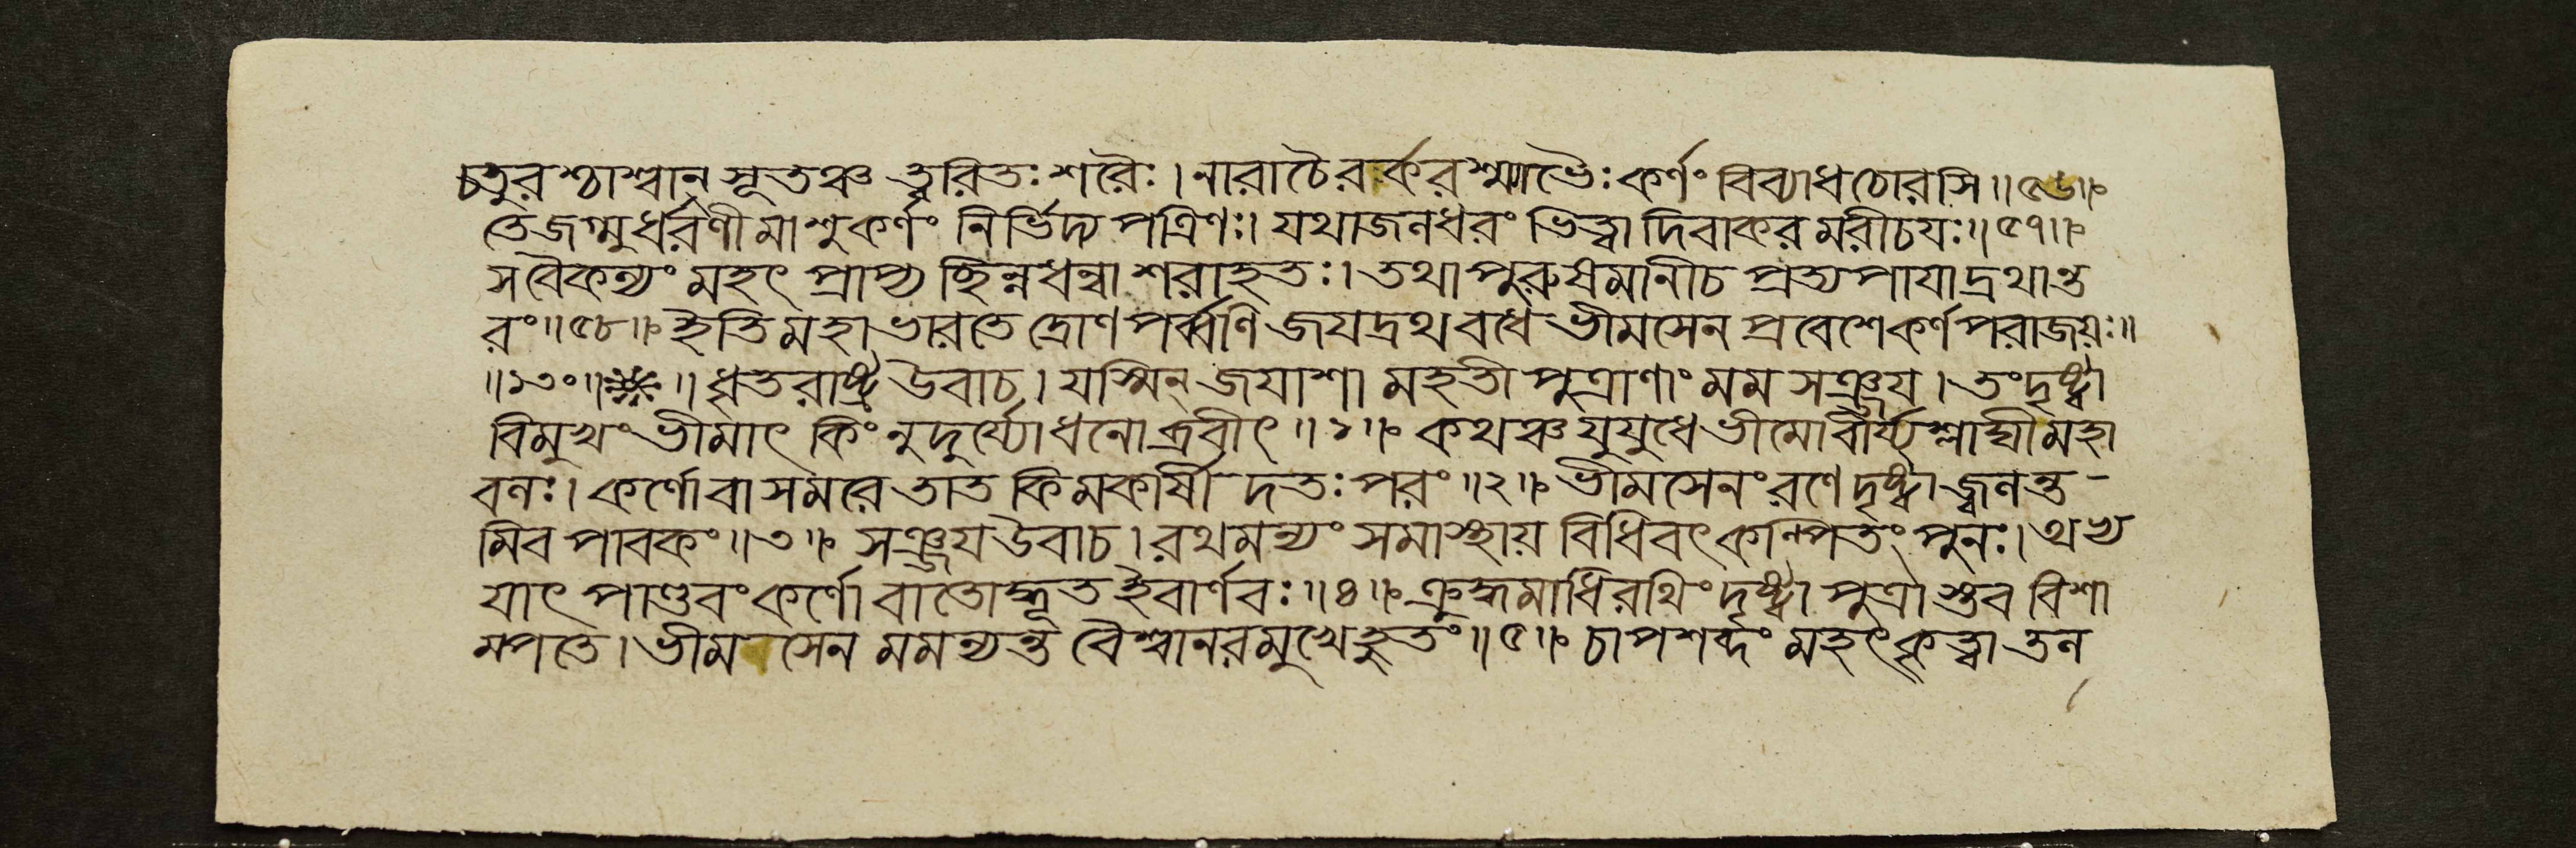 চতুরশ্চাশ্বান্ সূতঞ্চ ত্বরিতঃ শরৈঃ। নারাচৈরর্করশ্ম্যাভৈঃ কর্ণং বিব্যাধ চোরসি॥৫৬॥
তে জগ্মুর্ধরণীমাশু কর্ণং নির্ভিদ্য পত্রিণঃ। যথা জলধরং ভিত্ত্বা দিবাকর মরীচয়ঃ॥৫৭॥
স বৈকল্যং মহৎ প্রাপ্য ছিন্নধন্বা শরাহতঃ। তথা পুরুষমানী চ প্রত্যপায়াদ্রথান্ত
রং॥৫৮॥ ইতি মহাভারতে দ্রোণ পর্ব্বণি জয়দ্রথ বধে ভীমসেন প্রবেশে কর্ণ পরাজয়ঃ॥
॥১৩০॥ ॥ ধৃতরাষ্ট্র উবাচ। যস্মিন্ জয়াশা মহতী পুত্রাণাং মম সঞ্জয়। তং দৃষ্ট্বা
বিমুখং ভীমাৎ কিং নু দুর্য্যোধনো ব্রবীৎ॥১॥ কথঞ্চ যুযুধে ভীমো বীর্য্যশ্লাঘী মহা
বলঃ। কর্ণো বা সমরে তাত কিমকার্ষী দতঃ পরং॥২॥ ভীমসেনং রণে দৃষ্ট্বা জ্বলন্ত-
মিব পাবকং॥৩॥ সঞ্জয় উবাচ। রথমন্যং সমাস্থায় বিধিবৎ কল্পিতং পুনঃ। অভ্য
যাৎ পাণ্ডবং কর্ণো বাতোদ্ধূত ইবার্ণবঃ॥৪॥ ক্রুদ্ধমাধিরথিং দৃষ্ট্বা পুত্রাস্তব বিশা
ম্পতে। ভীমসেন মমন্যন্ত বৈশ্বানরমুখে হুতং॥৫॥ চাপশব্দং মহৎ কৃত্বা তল